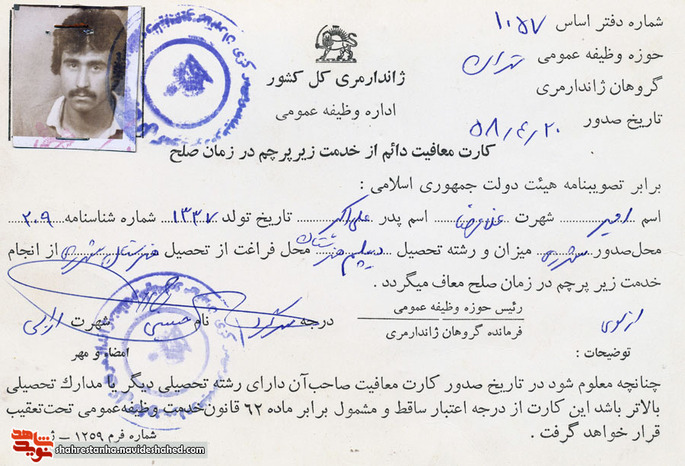 شماره دفتر اساس ۱۰۵۷
حوزه وظیفه عمومی تهران
گروهان ژاندارمری
تاریخ صدور ۵۸/۴/۲۰
ژاندارمری کل کشور
اداره وظیفه عمومی
کارت معافیت دائم از خدمت زیر پرچم در زمان صلح
برابر تصویبنامه هیئت دولت جمهوری اسلامی :
اسم امیر شهرت غلامرضا اسم پدر علی اکبر تاریخ تولد ۱۳۳۷ شماره شناسنامه ۲۰۹
محل صدور میزان و رشته تحصیل دیپلم هنرستان محل فراغت از تحصیل هنرستان از انجام
خدمت زیر پرچم در زمان صلح معاف میگردد .
از سوی رئیس حوزه وظیفه عمومی
فرمانده گروهان ژاندارمری
درجه نام حسینی شهرت
امضاء و مهر
توضیحات :
چنانچه معلوم شود در تاریخ صدور کارت معافیت صاحب آن دارای رشته تحصیلی دیگر یا مدارک تحصیلی
بالاتر باشد این کارت از درجه اعتبار ساقط و مشمول برابر ماده ۶۲ قانون خدمت وظیفه عمومی تحت تعقیب
قرار خواهد گرفت .
شماره فرم ۱۲۵۹ – ژ
نوید شاهد
shahrestanha.navideshahed.com